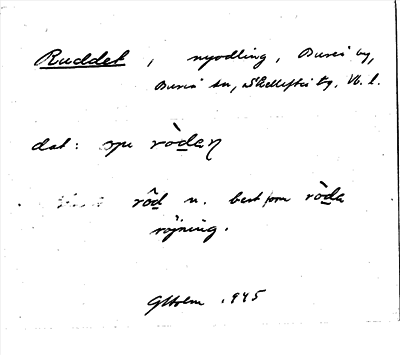 Ruddet, nyodling, Bureå by,
Bureå sn, Skellefteå tg, Vb. l.
dat: röda̲ŋ
rö̂d̲ n. best form rò̈d̲a
röjning.
GHolm 1945